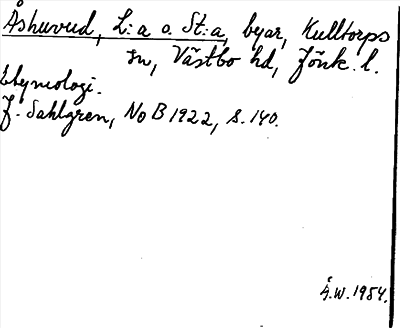 Åshuvud, L:a o. St:a, byar, Kulltorps
sn, Västbo hd, Jönk. l.
Etymologi.
J. Sahlgren, NoB 1922, s. 140.
Å.W. 1954.